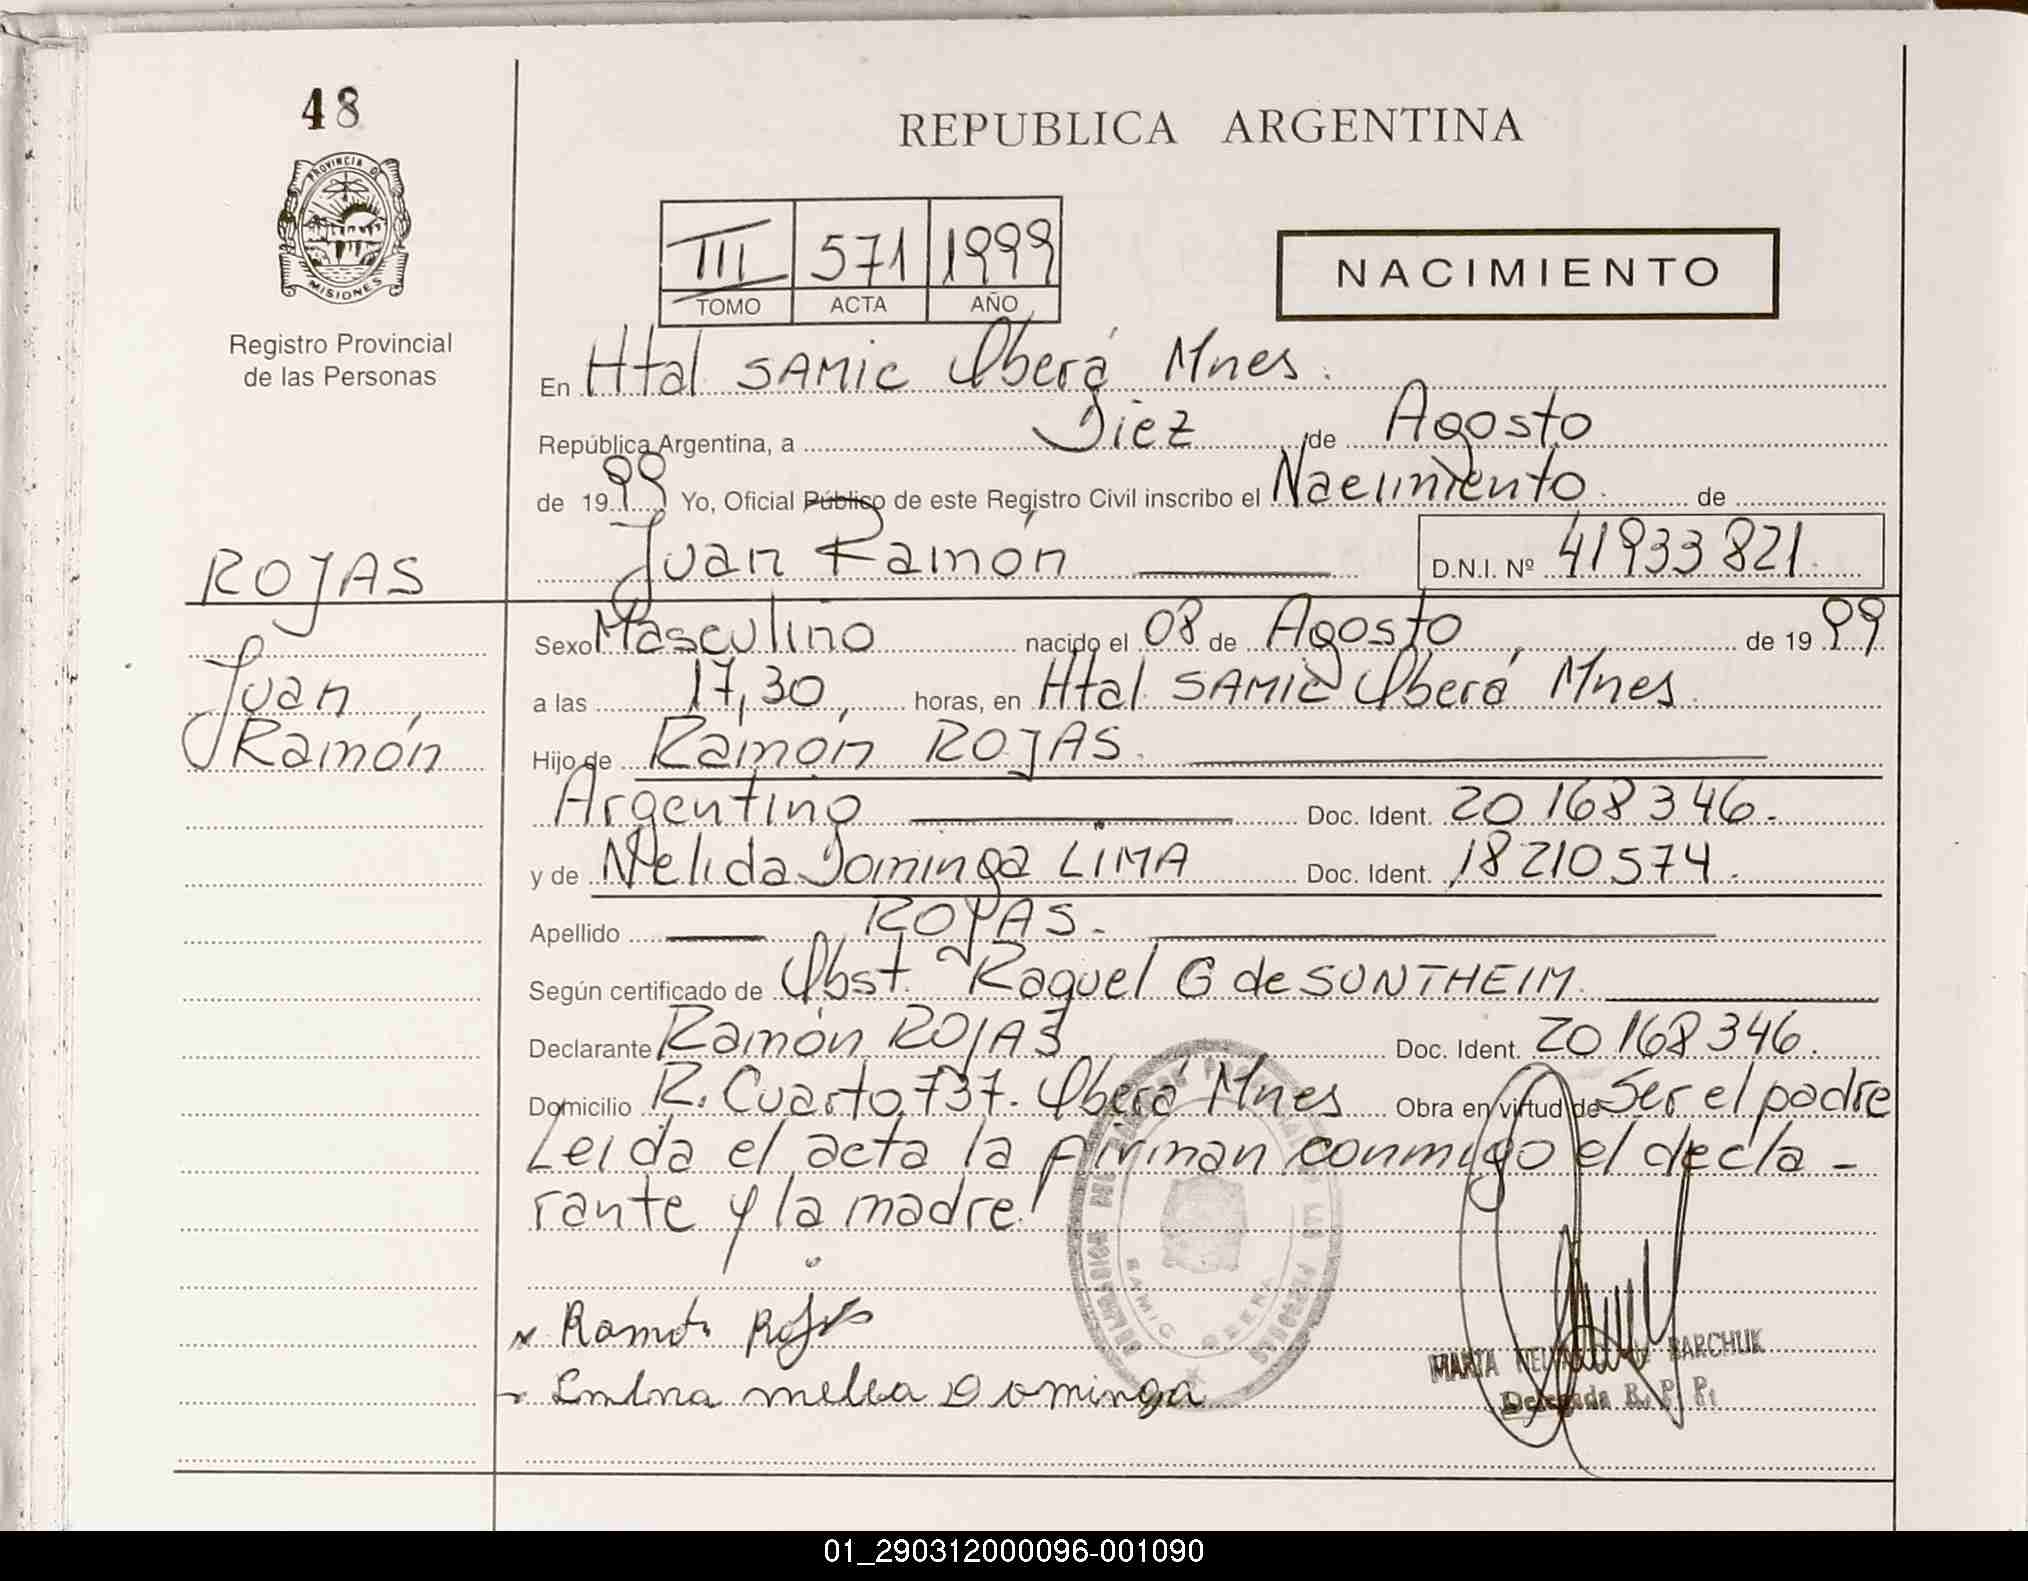 48
PROVINCIA DE
MISIONES
Registro Provincial
de las Personas
REPUBLICA ARGENTINA
III 571 1999
TOMO ACTA AÑO
NACIMIENTO
En Htal SAMIC Oberá Mnes.
República Argentina, a Diez de Agosto
de 1999 Yo, Oficial Público de este Registro Civil inscribo el Nacimiento de
Juan Ramón D.N.I. Nº 41933821
ROJAS
Juan
Ramón
Sexo Masculino nacido el 08 de Agosto de 1999
a las 17,30 horas, en Htal SAMIC Oberá Mnes.
Hijo de Ramón ROJAS.
Argentino Doc. Ident. 20168346.
y de Nelida Dominga LIMA Doc. Ident. 18210574.
Apellido ROJAS.
Según certificado de Obst. Raquel G de SONTHEIM.
Declarante Ramón ROJAS Doc. Ident. 20168346.
Domicilio R. Cuarto 737. Oberá Mnes Obra en virtud de Ser el padre
Leida el acta la firman conmigo el decla-
rante y la madre.
Rojas
Dominga
MARTA BARCHUK
Delegada R. P. P.
SAMIC OBERA
01_290312000096-001090